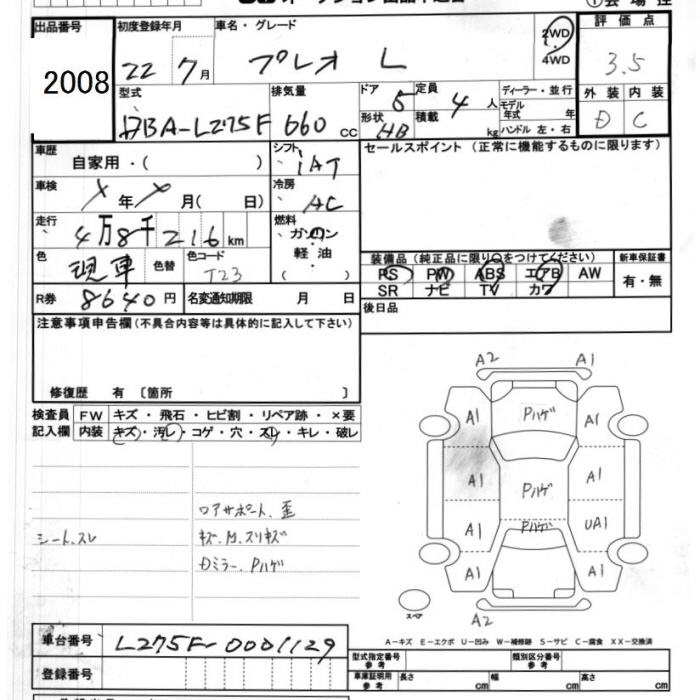 出品番号 初度登録年月 車名・グレード 評価点
2008 22 7月 プレオ L 2WD 3.5
4WD
型式 排気量 ドア 定員 ディーラー・並行 外装 内装
DBA-L275F 660cc 5 4人 モデル年式 年 D C
形状 HB 積載 kg ハンドル 左・右
車歴 シフト セールスポイント (正常に機能するものに限ります)
自家用・( ) IAT
車検 冷房
X年X月(日) AC
走行 燃料
4万8千216km ガソリン
軽油
( )
色 色替 色コード 装備品 (純正品に限り○をつけてください) 新車保証書
現車 T23 PS PW ABS エアB AW 有・無
SR ナビ TV カワ
R券 8640円 名変通知期限 月 日 後日品
注意事項申告欄(不具合内容等は具体的に記入して下さい)
修復歴 有 〔箇所 〕
検査員 FW キズ・飛石・ヒビ割・リペア跡・×要
記入欄 内装 キズ・汚レ・コゲ・穴・スレ・キレ・破レ
シート、スレ
コアサポート、歪
キズ、M、スリキズ
Dミラー、Pハゲ
A2 A1
A1 Pハゲ A1
A1 Pハゲ A1
A1 Pハゲ UA1
A1 A1
スペア A2
A-キズ E-エクボ U-凹み W-補修跡 S-サビ C-腐食 XX-交換済
車台番号 L275F-0001129
登録番号
型式指定番号 参考 類別区分番号 参考
車庫証明用 参考 長さ cm 幅 cm 高さ cm